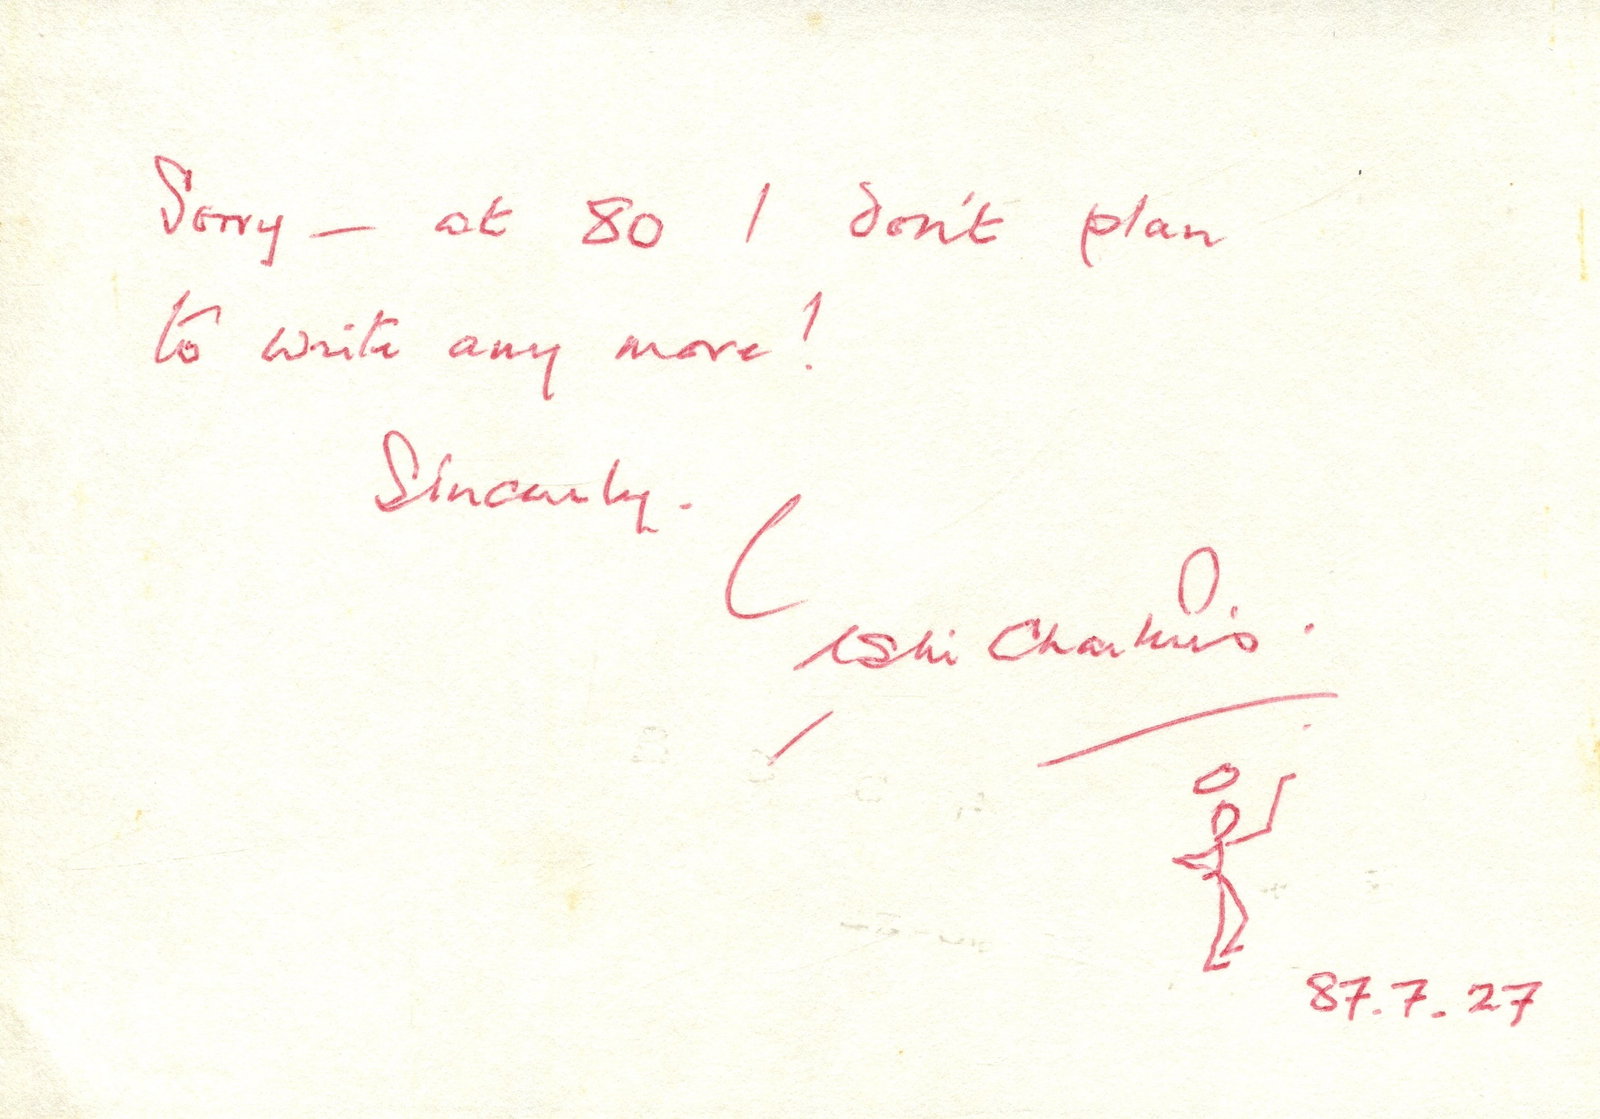 Sorry — at 80 I don't plan
to write any more!
Sincerely.
Leslie Charteris.
87.7.27